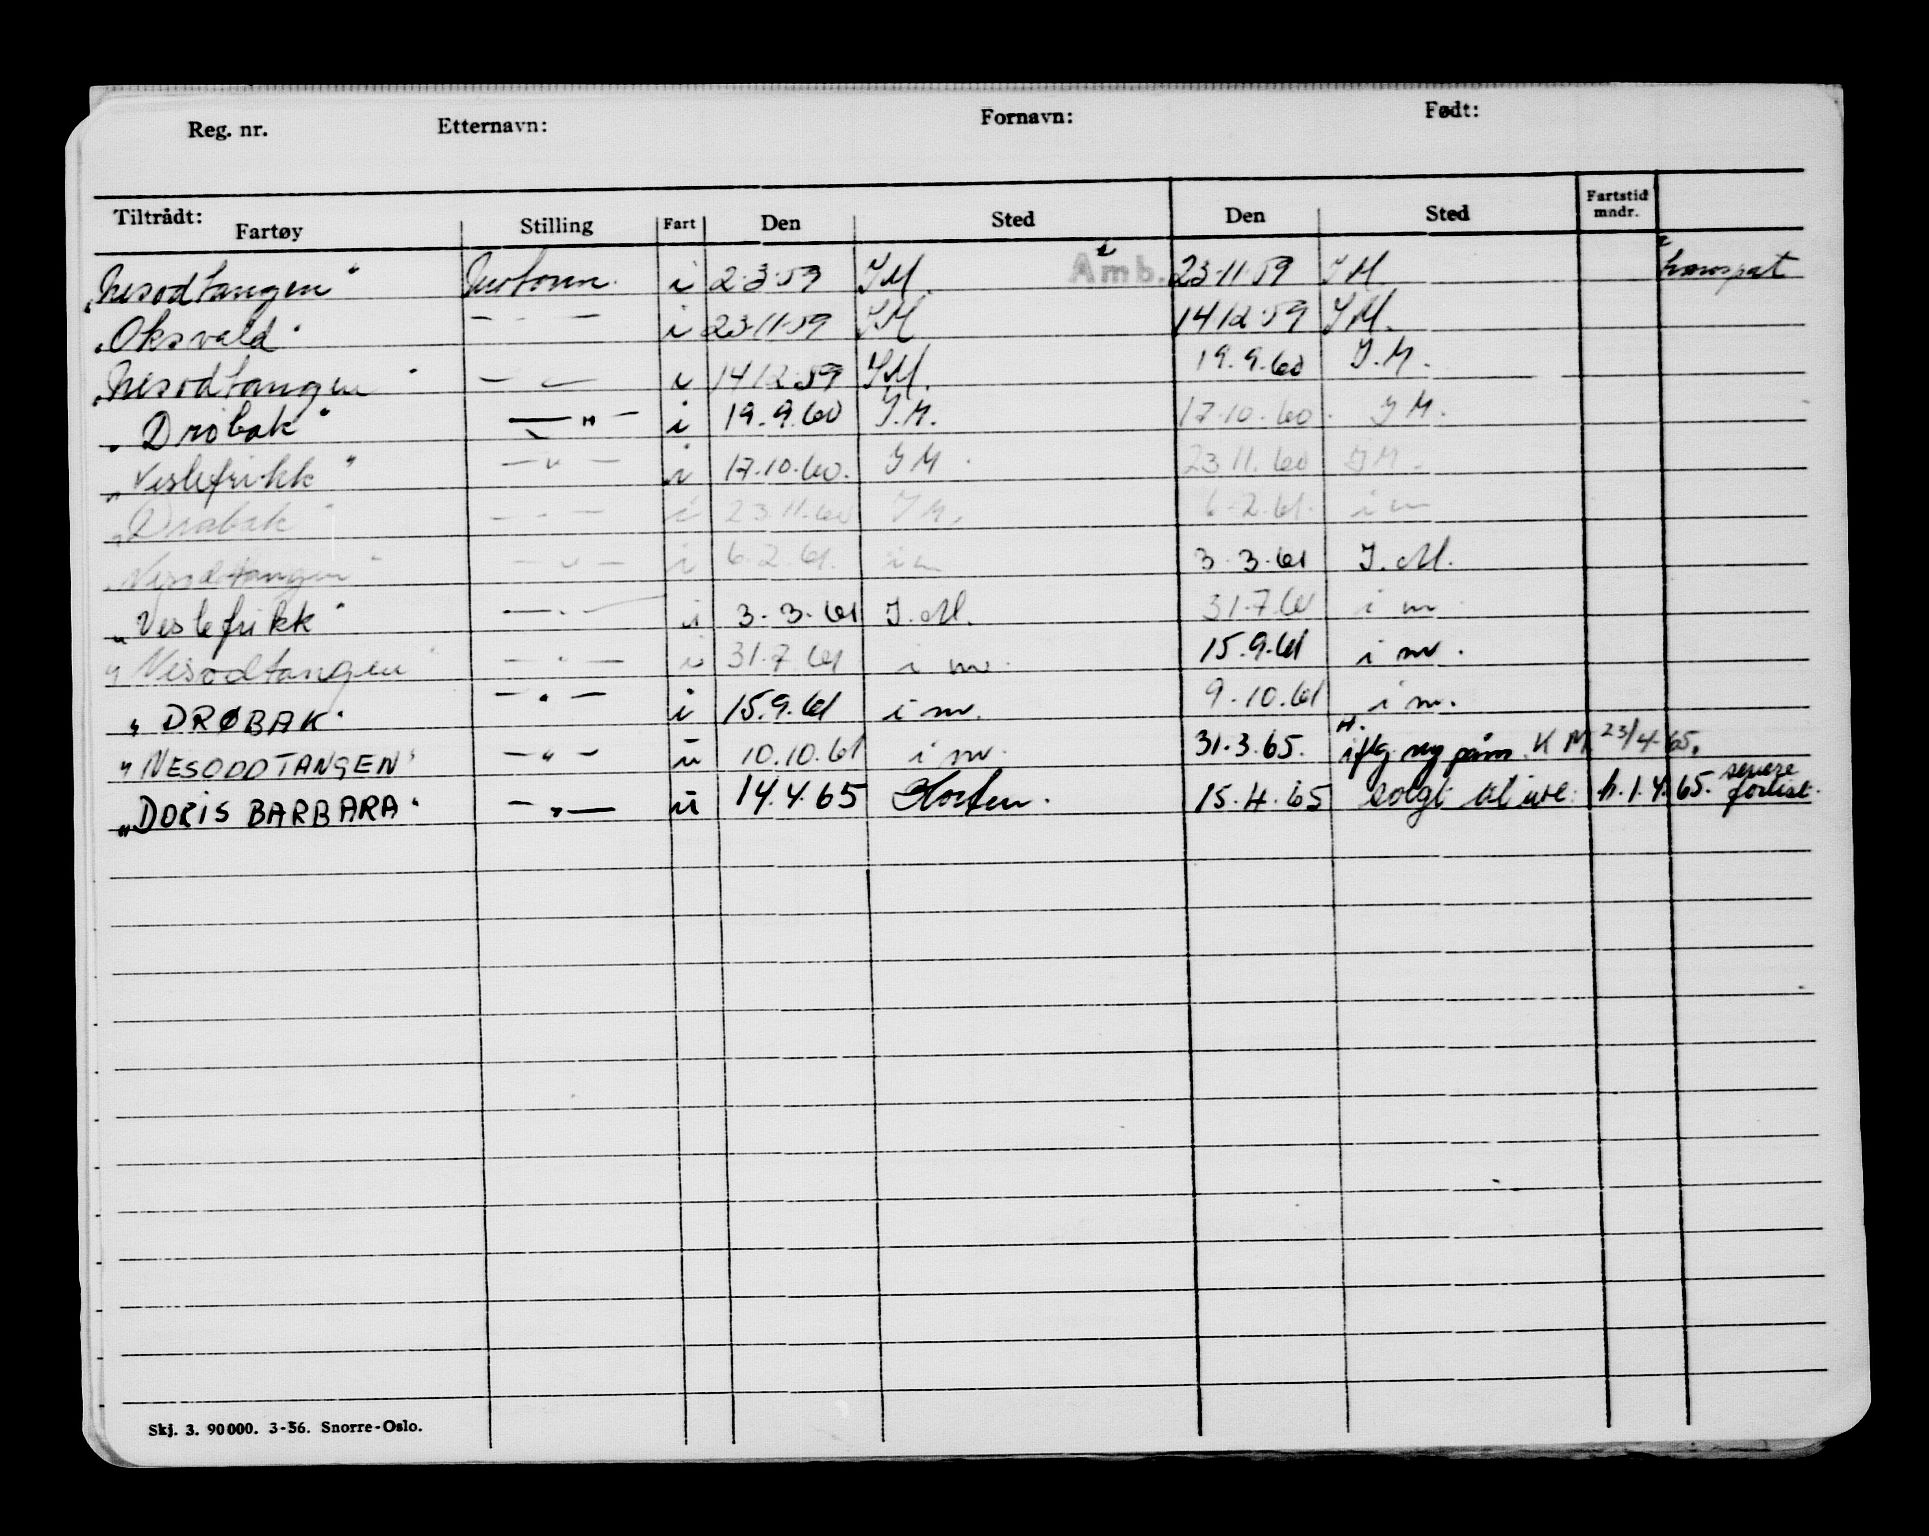 Reg. nr. Etternavn: Fornavn: Født:
Tiltrådt:
Fartøy Stilling Fart Den Sted Den Sted Fartstid mndr.
„Nesodtangen" i 2·3·59 I M. Amb. 23·11·59 I M.
„Oksvald" — " — i 23·11·59 I M 14 12·59 I M.
„Nesodtangen" — " — i 14 12·59 I M. 19.9.60 I.M.
„Drøbak" — " — i 19.9.60 I.M. 17.10.60. I M.
„Veslefrikk" — " — i 17.10.60. I M. 23 11.60 I M.
„Drøbak" — " — i 23.11.60 I M. 6.2.61. i m
„Nesodtangen" — " — i 6.2.61. i m 3.3.61 I.M.
„Veslefrikk" — " — i 3.3.61 I.M. 31.7.61 i m
„Nesodtangen" — " — i 31.7.61 i m. 15.9.61 i m.
„DRØBAK" — " — i 15.9.61 i m. 9.10.61 i m.
„NESODDTANGEN" — " — u 10.10.61 i m. 31.3.65. iflg. K M. 23/4-65.
„DORIS BARBARA" — " — u 14.4.65 Horten. 15.4.65 solgt til 1.4.65. senere forlist.
Skj. 3. 90000. 3-56. Snorre-Oslo.